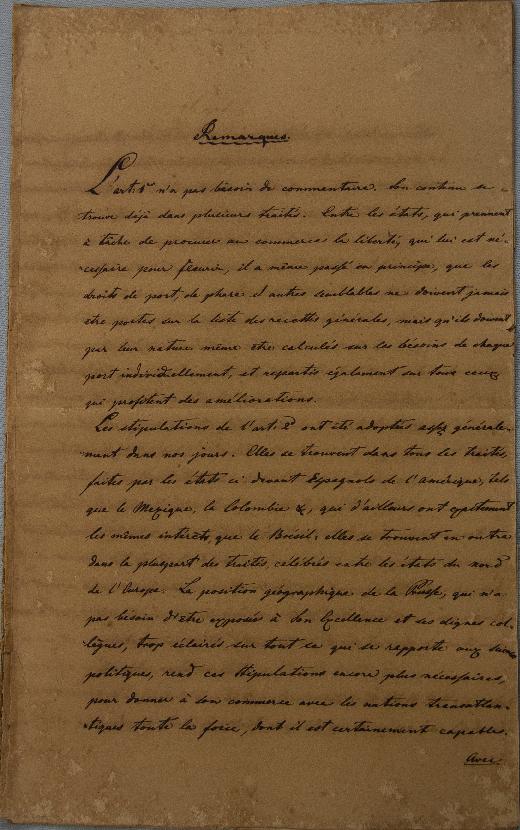 Remarques.
L'art: 1er n'a pas besoin de commentaire. Son contenu se
trouve déjà dans plusieurs traités. Entre les états, qui prennent
à tâche de procurer au commerce la liberté, qui lui est né-
cessaire pour fleurir, il a même passé en principe, que les
droits de port, de phare et autres semblables ne doivent jamais
être portés sur la liste des recettes générales, mais qu'ils doivent
par leur nature même être calculés sur les besoins de chaque
port individuellement, et repartis également sur tous ceux
qui profitent des améliorations.
Les stipulations de l'art: 2d ont été adoptées assez générale-
ment dans nos jours. Elles se trouvent dans tous les traités,
faites par les états ci devant Espagnols de l'Amérique, tels
que le Mexique, la Colombie &, qui d'ailleurs ont exactement
les mêmes intérêts que le Brésil; elles se trouvent en outre
dans la pluspart des traités, célébrés entre les états du nord
de l'Europe. La position géographique de la Russie, qui n'a
pas besoin d'être exposée à Son Excellence et ses dignes col-
lègues, trop éclairés sur tout ce qui se rapporte aux
politiques, rend ces stipulations encore plus nécessaires,
pour donner à son commerce avec les nations transatlan-
tiques toute la force, dont il est certainement capable.
Avec